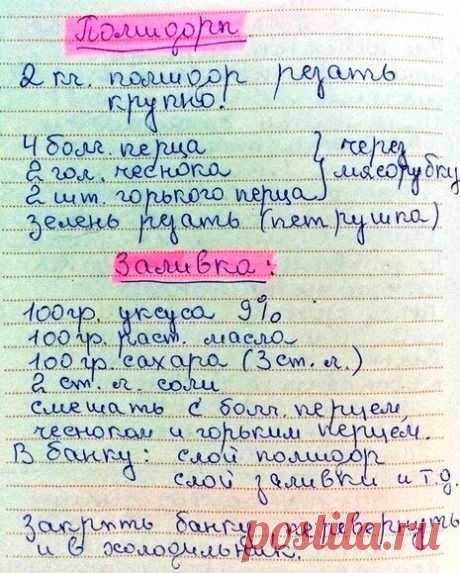 Помидоры
2 кг. помидор резать
крупно!
4 болг. перца } через
2 гол. чеснока } мясорубку
2 шт. горького перца
зелень резать (петрушка)
Заливка:
100гр. уксуса 9%
100гр. раст. масла
100гр. сахара (3 ст. л.)
2 ст. л. соли
смешать с болг. перцем,
чесноком и горьким перцем.
В банку: слой помидор
слой заливки и т.д.
Закрыть банку, перевернуть
и в холодильник.
postila.ru